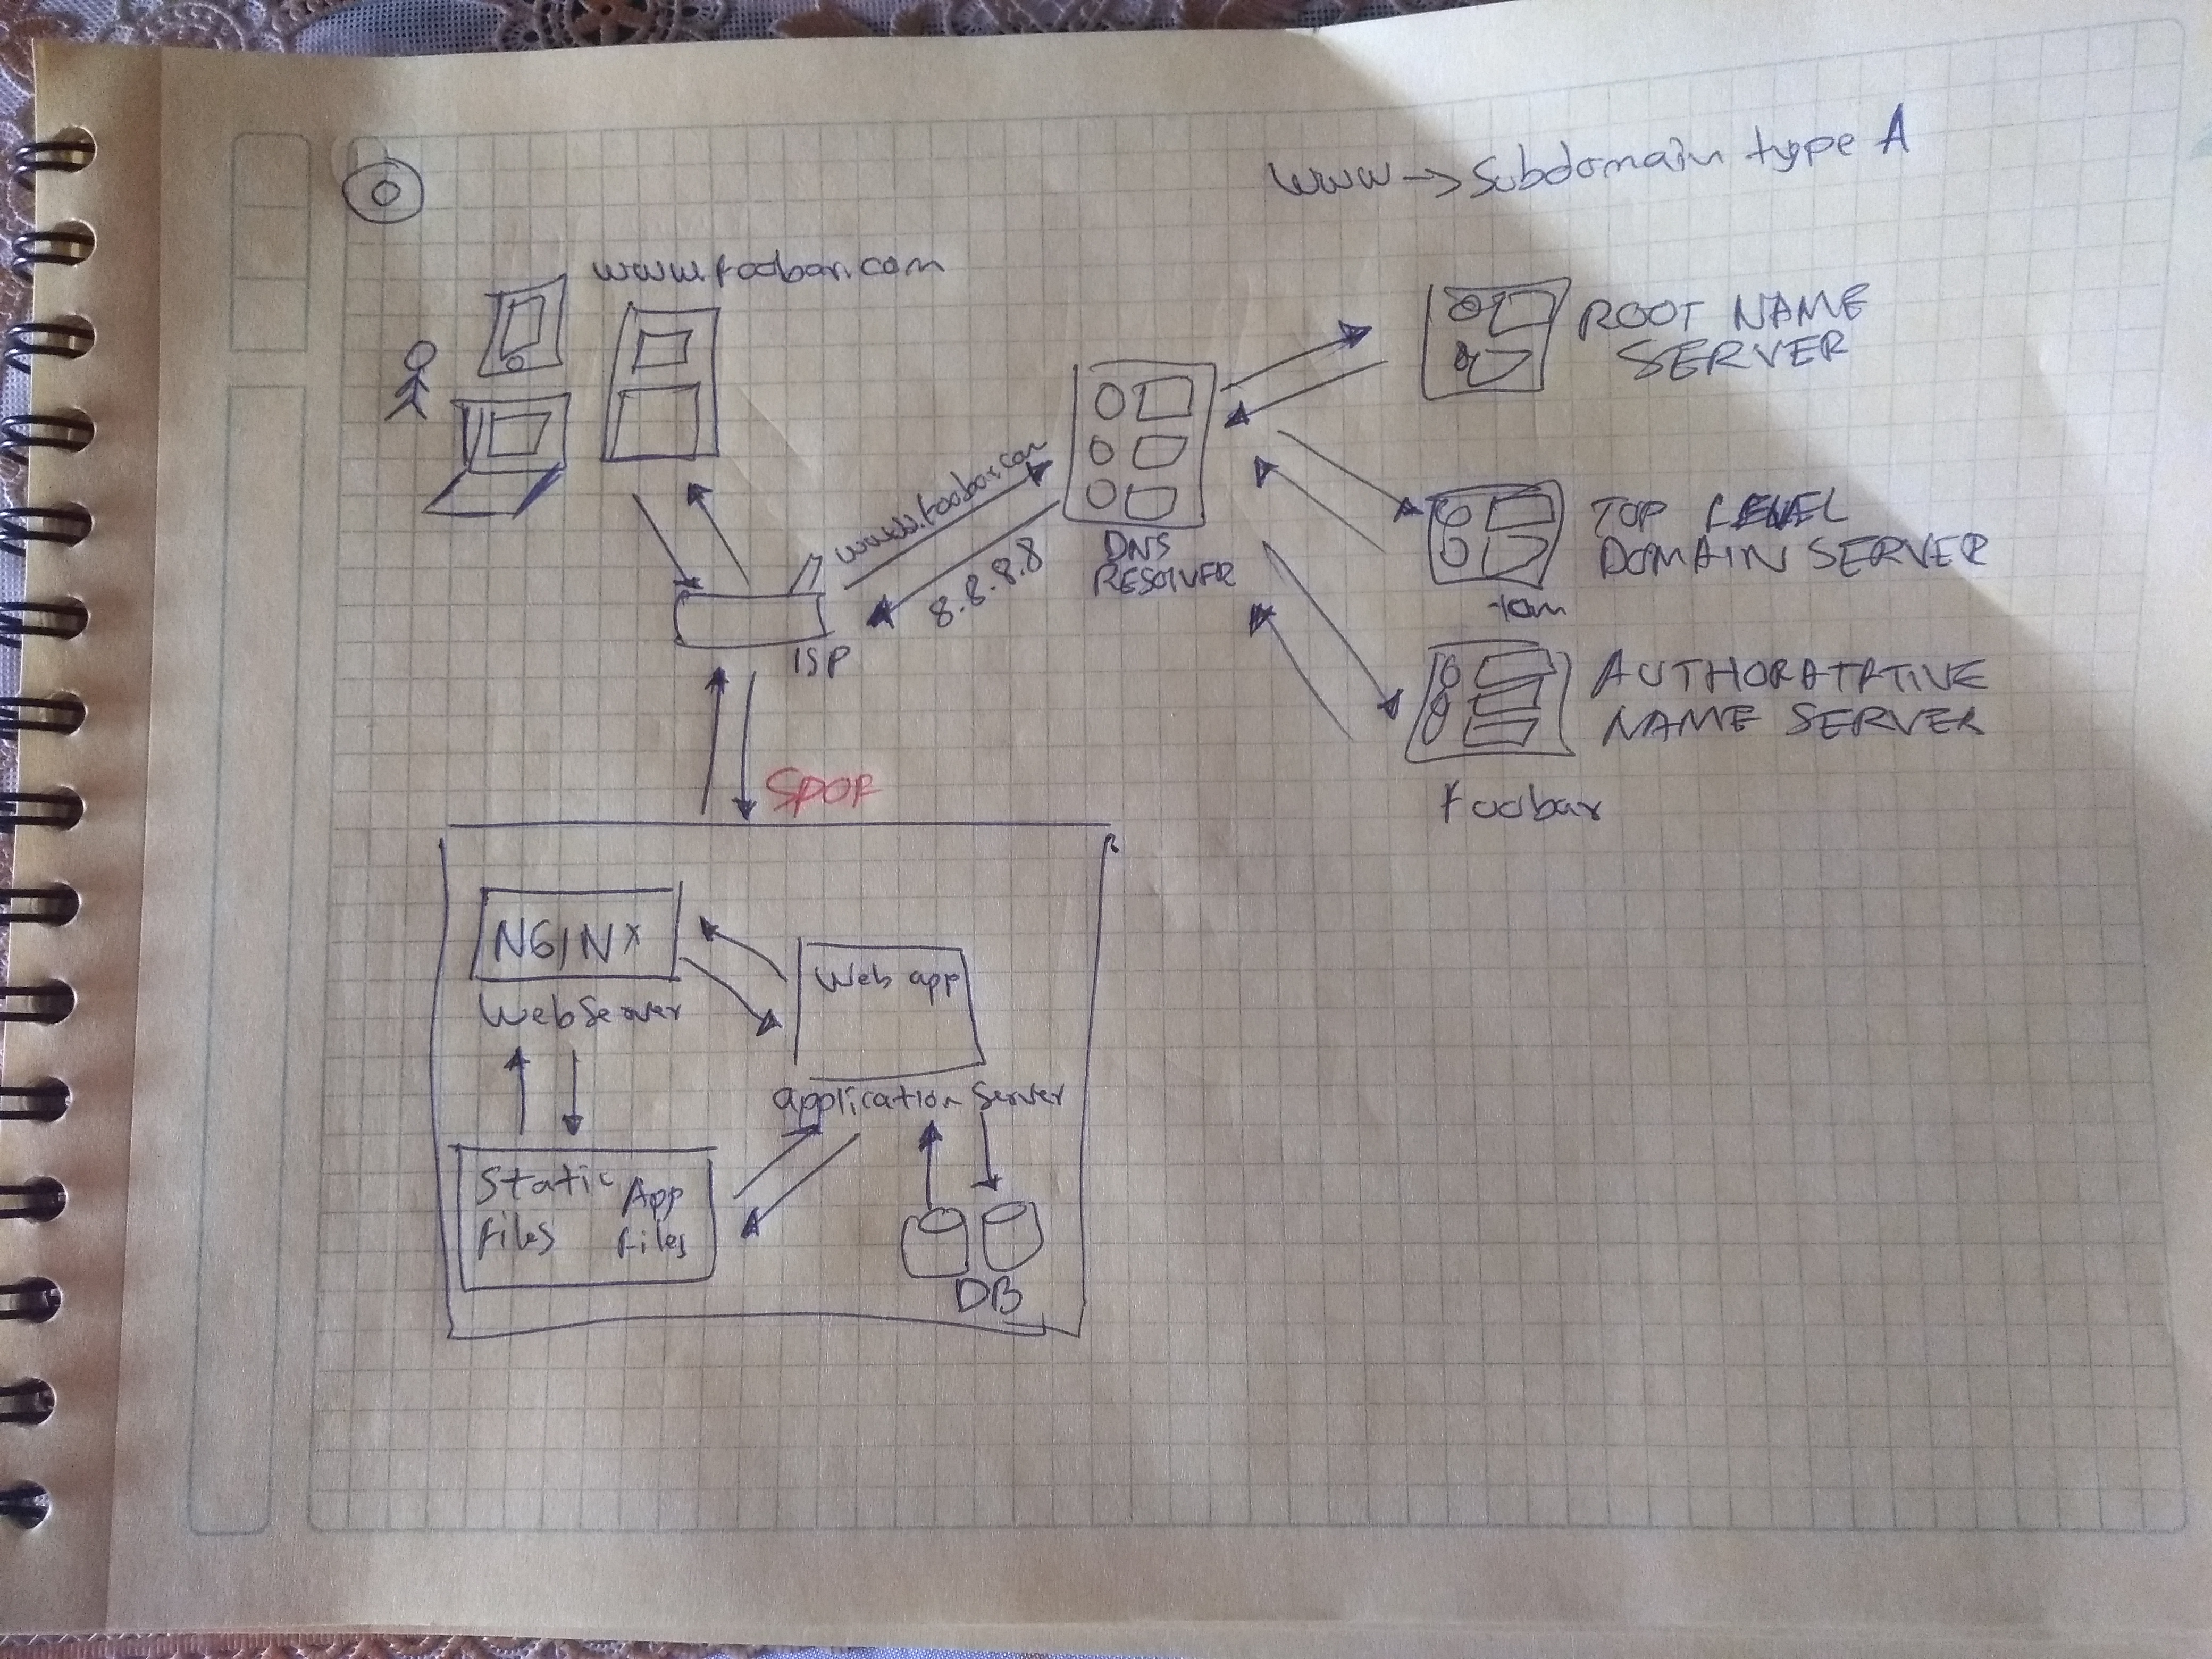 0
www → Subdomain type A
www.foobar.com
ROOT NAME
SERVER
www.foobar.com
8.8.8.8
DNS
RESOLVER
TOP LEVEL
DOMAIN SERVER
ISP
AUTHORATATIVE
NAME SERVER
foobar
SPOF
NGINX
Web Server
Web app
application Server
Static
files
App
files
DB